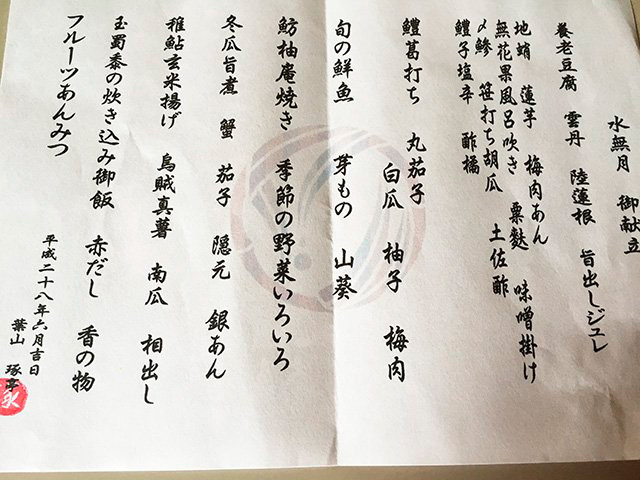 水無月　御献立
養老豆腐　雲丹　陸蓮根　旨出しジュレ
地蛸　蓮芋　梅肉あん
無花果風呂吹き　粟麩　味噌掛け
〆鯵　笹打ち胡瓜　土佐酢
鱧子塩辛　酢橘
鱧葛打ち　丸茄子　白瓜　柚子　梅肉
旬の鮮魚　芽もの　山葵
魴柚庵焼き　季節の野菜いろいろ
冬瓜旨煮　蟹　茄子　隠元　銀あん
稚鮎玄米揚げ　烏賊真薯　南瓜　相出し
玉蜀黍の炊き込み御飯　赤だし　香の物
フルーツあんみつ
平成二十八年六月吉日
葉山　琢亭